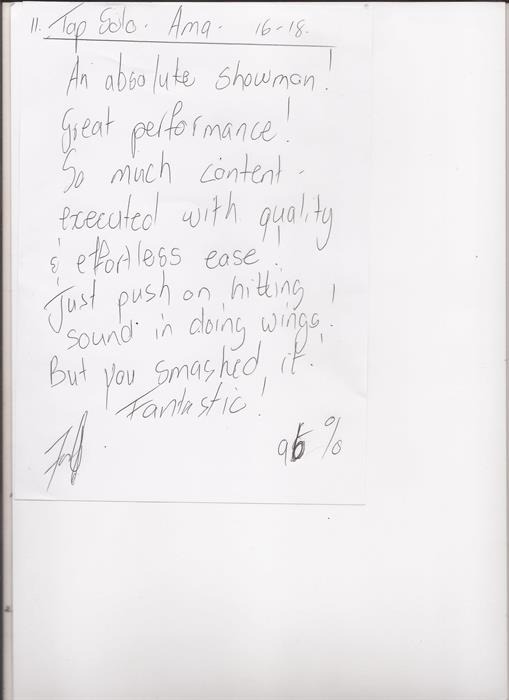 11. Tap Solo. Ama. 16-18.
An absolute showman!
Great performance!
So much content -
executed with quality
& effortless ease!
Just push on hitting
sound in doing wings!
But you smashed it!
Fantastic!
%